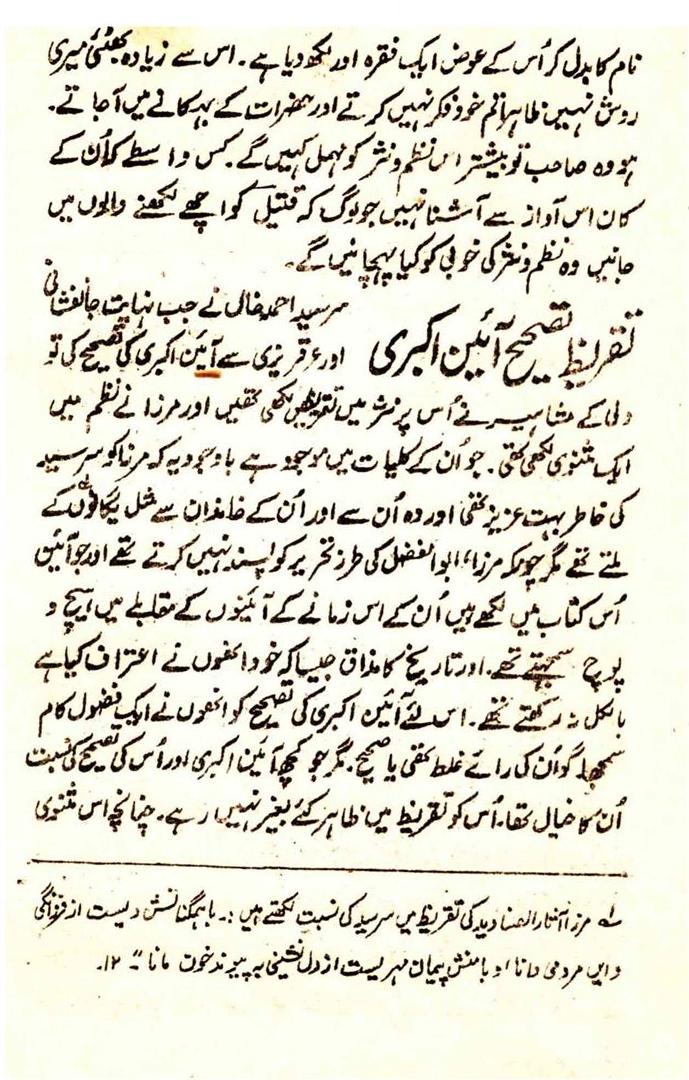 نام کا بدل کر اُس کے عوض ایک فقرہ اور لکھ دیا ہے۔ اس سے زیادہ بھٹئی میری
روش نہیں ظاہراً تم خود فکر نہیں کرتے اور حضرات کے بہکانے میں آجاتے۔
ہو وہ صاحب تو بیشتر اس نظم و نثر کو مہمل کہیں گے۔ کس واسطے کہ اُن کے
کان اس آواز سے آشنا نہیں جو لوگ کہ قتیل کو اچھے لکھنے والوں میں
جانیں وہ نظم و نثر کی خوبی کو کیا پہچانیں گے۔
تقریظ تصحیح آئین اکبری
سرسید احمد خاں نے جب نہایت جانفشانی
اور عرقریزی سے آئین اکبری کی تصحیح کی تو
دلی کے مشاہیر نے اُس پر نثر میں تقریظیں لکھی تھیں اور مرزا نے نظم میں
ایک مثنوی لکھی تھی۔ جو اُن کے کلیات میں موجود ہے باوجودیہ کہ مرزا کو سرسید
کی خاطر بہت عزیز تھی اور وہ اُن سے اور اُن کے خاندان سے مثل یگانوں کے
ملتے تھے مگر چونکہ مرزا، ابوالفضل کی طرز تحریر کو پسند نہیں کرتے تھے اور جو آئین
اُس کتاب میں لکھے ہیں اُن کے اس زمانے کے آئینوں کے مقابلے میں ہیچ و
پوچ سمجھتے تھے۔ اور تاریخ کا مذاق جیسا کہ خود انھوں نے اعتراف کیا ہے
بالکل نہ رکھتے تھے۔ اس لئے آئین اکبری کی تصحیح کو انھوں نے ایک فضول کام
سمجھا۔ گو اُن کی رائے غلط تھی یا صحیح۔ مگر جو کچھ آئین اکبری اور اُس کی تصحیح کی نسبت
اُن کا خیال تھا۔ اُس کو تقریظ میں ظاہر کئے بغیر نہیں رہے۔ چنانچہ اس مثنوی
لہ مرزا آثار الصنادید کی تقریظ میں سرسید کی نسبت لکھتے ہیں:۔ باہمگنانش دیست از فرزانگی
و ایں مردمی دانا او بامنش پیمان مہریست از دل نشینی بہ پیوند خون مانا" ۱۲۔